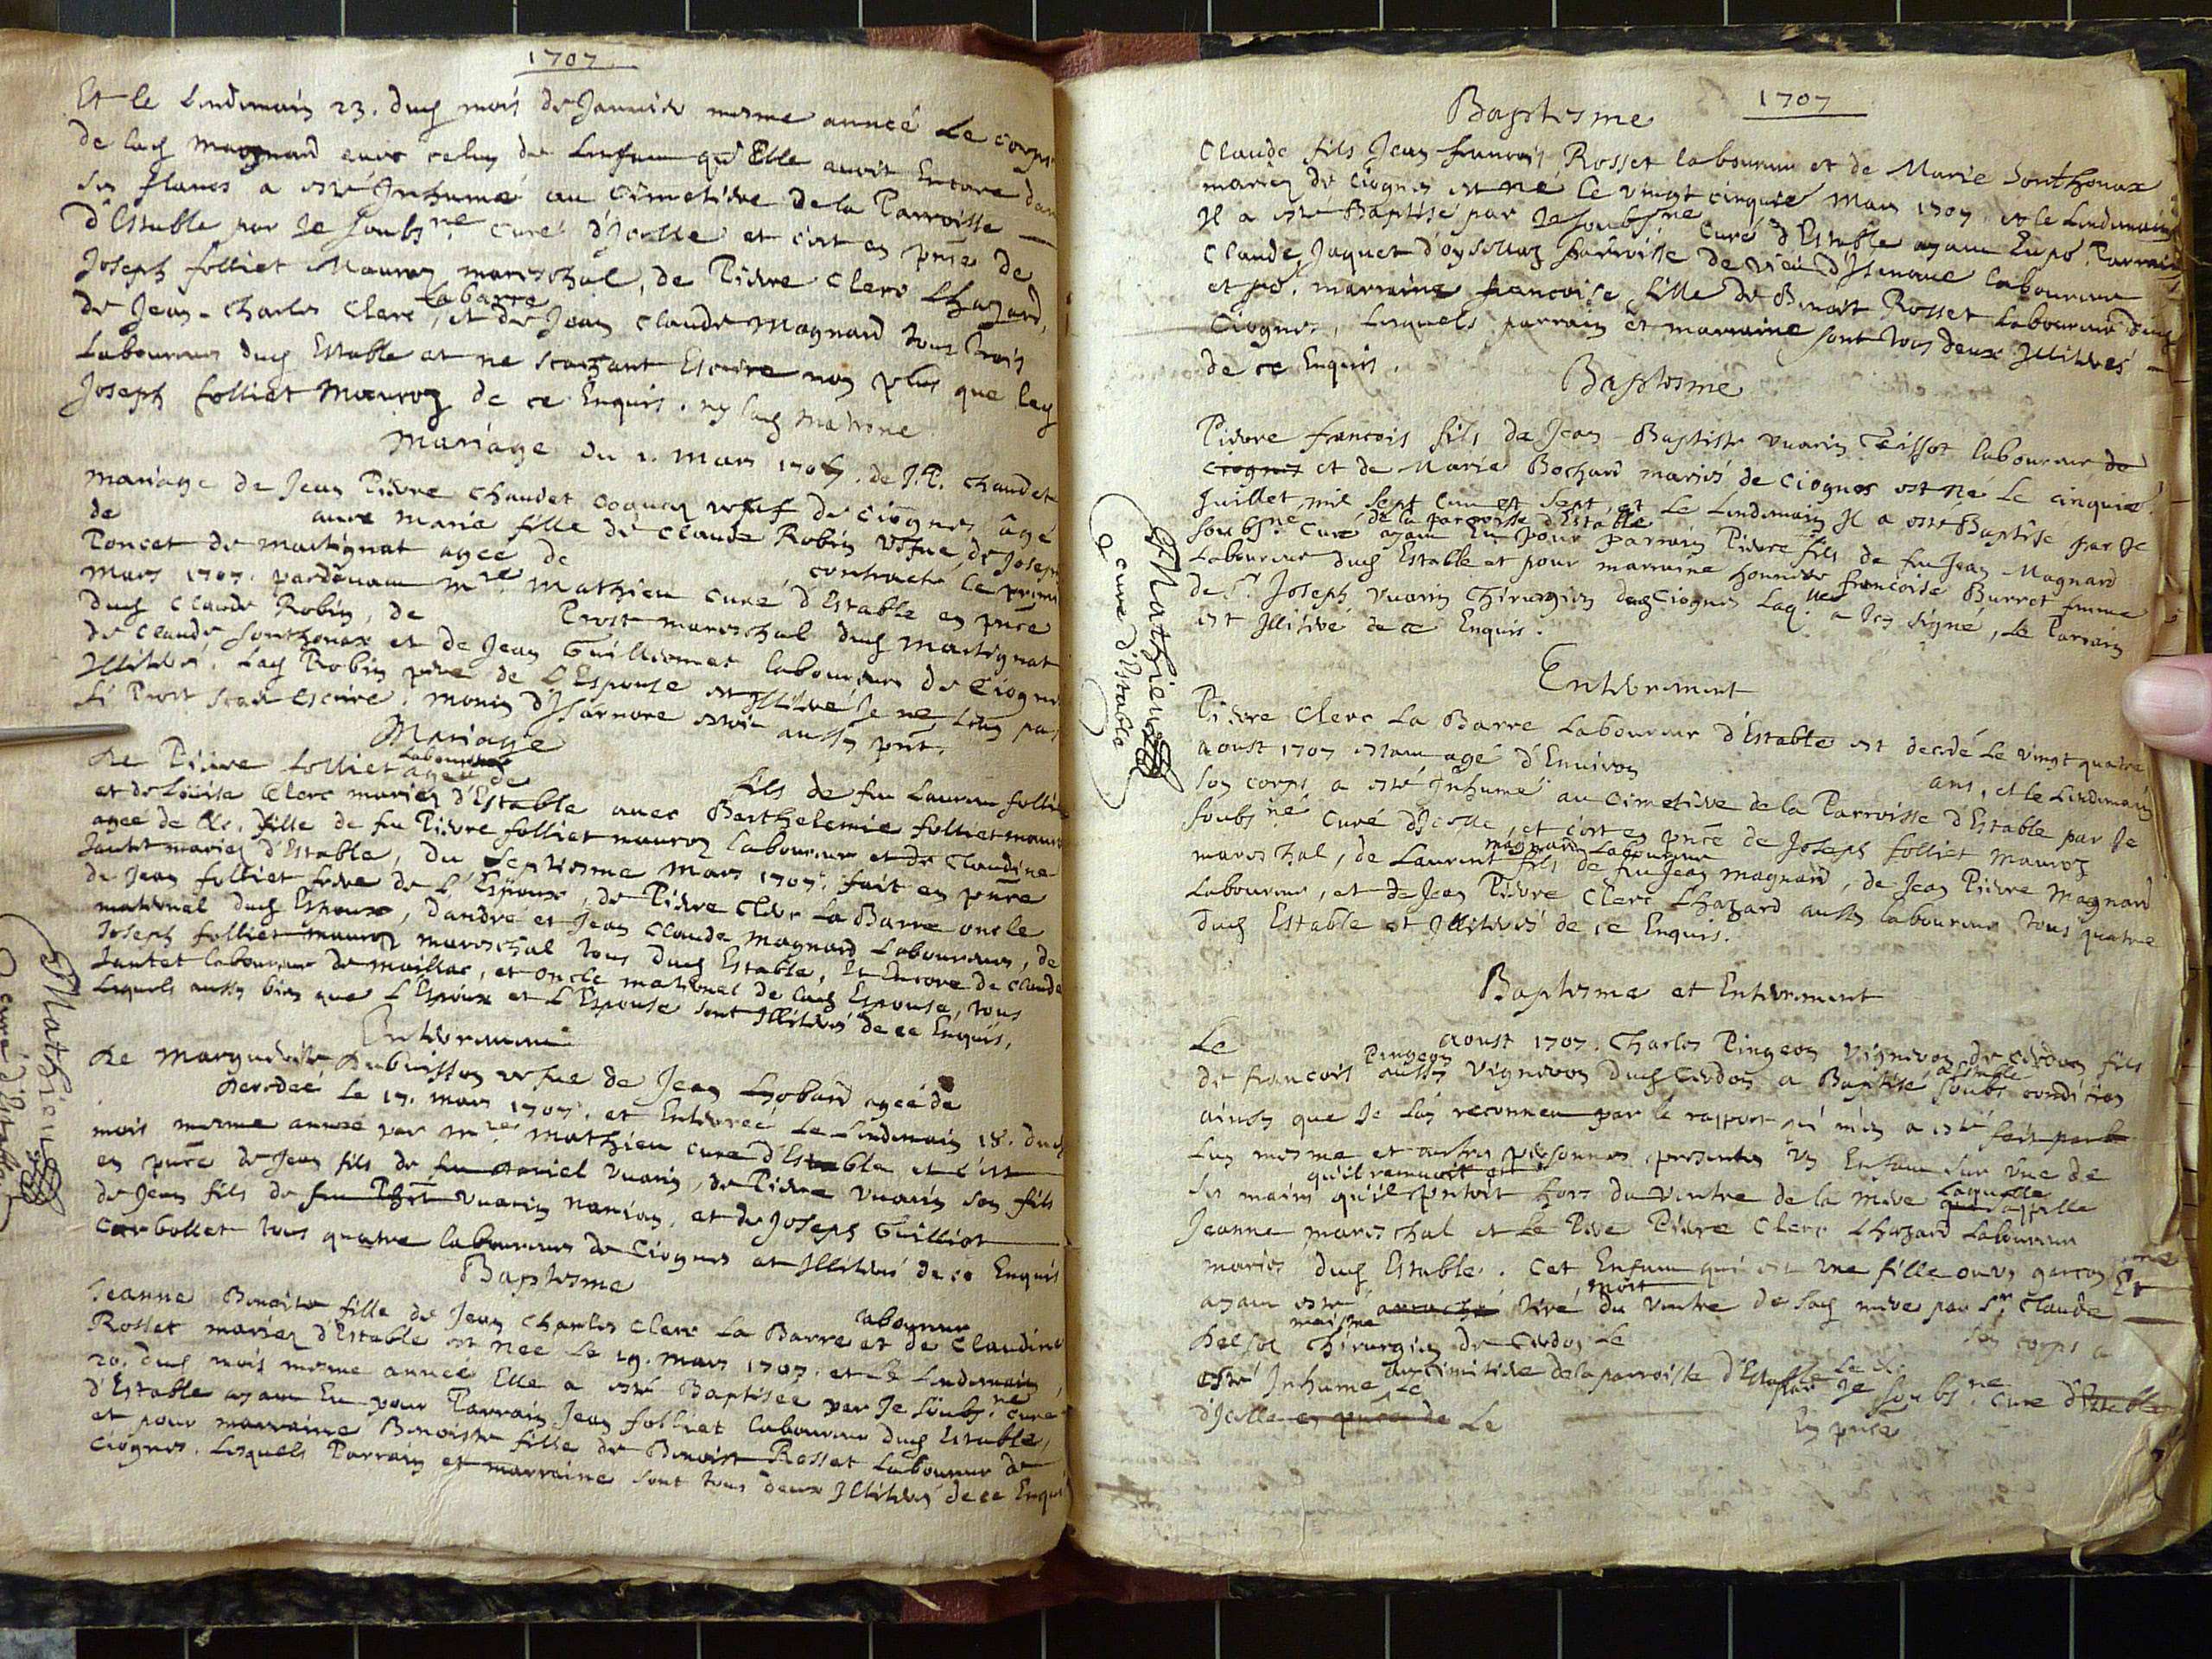 1707
Et le Lendemain 23. dud mois de Janvier mesme année Le corps
de lad Magnard avec celuy de Lenfan qu'Elle avoit Encore dan
ses flancs a esté Inhumé au Cimetiere de la Parroisse
d'Estable par Je soubsne curé d'Icelle et c'est en pnce de
Joseph folliet Mauroz mareschal, de Pierre Clerc Lhazard,
de Jean-Charles Clerc Labarre, et de Jean Claude Magnard tous trois
Laboureurs dud Estable et ne scaizant Escrire non plus que led
Joseph folliet Mauroz de ce Enquis. ny lad matrone
Mariage du 1. Mars 1707. de J.P. Chaudet
Mariage de Jean Pierre Chaudet Coquaz vefuf de Ciognes âgé
de avec Marie fille de Claude Robin vefue de Joseph
Poncet de Martignat agee de , contracté le premi
Mars 1707. pardevam mre Mathieu curé d'Estable en pnce
dud Claude Robin, de Prost mareschal dud Martignat
de Claude Sonthonax et de Jean Guilliermet laboureurs de Ciogne
Illiterés. Led Robin pere de L'Espouse est Illiteré Je ne scay pas
si Prost scait escrire. Monin d'Isarnore estoit aussy pnt.
Mariage
de Pierre folliet Laboureur agé de fils de feu Laurem folliet
et de Loüise Clerc mariez d'Estable avec Barthelemie folliet mauro
agee de &c. fille de feu Pierre folliet mauroz laboureur et de Claudine
Jantet mariez d'Estable, du Septiesme Mars 1707. fait en pnce
de Jean folliet frere de L'Espoux, de Pierre Clerc La Barre oncle
maternel dud Espoux, D'andre et Jean Claude Magnard Laboureurs, de
Joseph folliet mauroz mareschal tous dud Estable, Et Encore de Claude
Jantet laboureur de Maillac, et oncle maternel de lad Espouse, tous
Lesquels aussy bien que L'Espoux et L'Espouse sont Illiterés de ce Enquis.
Enterrement
de Marguerite Dubuisson vefue de Jean Lhobard agée de
decedée Le 17. mars 1707. et Enterrée Le Lendemain 18. dud
mois mesme année par mre Mathieu curé d'Estable et c'est
en pnce de Jean fils de feu Vuarin, de Pierre Vuarin son fils
de Jean fils de feu Vuarin Nanian, et de Joseph Guilliot
Carbollet tous quatre laboureurs de Ciognes et Illiterés de ce Enquis
Baptesme
Jeanne Benoite fille de Jean Charles Clerc La Barre laboureur et de Claudine
Rosset mariez d'Estable est née Le 19. mars 1707. et Le Lendemain
20. dud mois mesme année Elle a esté Baptisée par Je soubsne curé
d'Estable ayam Eu pour Parrain Jean folliet laboureur dud Estable,
et pour marraine Benoiste fille de Benoist Rosset Laboureur de
Ciognes. Lesquels Parrain et marraine sont tous deux Illiterés de ce Enquis
Mathieu
curé d'Estable
1707
Baptesme
Claude fils Jean francois Rosset laboureur et de Marie Sonthonax
mariez de Ciognes est né le vingt cinquie Mars 1707 et le Lendemain
Il a esté Baptisé par Je soubsne Curé d'Estable ayam Eu pr Parrain
Claude Jaquet d'oyssellaz parroisse de vieu d'Isenaue laboureur
et pr. marraine francoise fille de Benoit Rosset Laboureur dud
Ciognes, Lesquels parrain et marraine sont tous deux Illiterés
de ce Enquis.
Baptesme
Pierre francois fils de Jean-Baptiste Vuarin Teissot laboureur de
Ciognes et de Marie Bochard mariés de Ciognes est né Le cinquie
Juillet mil sept cen et sept, et Le Lendemain Il a esté Baptisé par Je
soubsne Curé de la parroisse d'Estable ayam Eu pour parrain Pierre fils de feu Jean Magnard
Laboureur dud Estable et pour marraine honneste francoise Burret femme
de Sr Joseph Vuarin Chirurgien dud Ciognes Laqlle a Icy signé, Le Parrain
est Illiteré de ce Enquis.
Mathieu
curé d'Estable
Enterrement
Pierre Clerc La Barre Laboureur d'Estable est decedé Le vingt quatre
aoust 1707 estam agé d'Environ ans, et le Lendemain
son corps a esté Inhumé au Cimetiere de la Parroisse d'Estable par Je
soubsné Curé d'Icelle, et c'est en pnce de Joseph folliet Mauroz
mareschal, de Laurent magnard Laboureur fils de feu Jean Magnard, de Jean Pierre Magnard
Laboureur, et de Jean Pierre Clerc Lhazard aussy laboureur tous quatre
dud Estable et Illiterés de ce Enquis.
Baptesme et Enterrement
Le aoust 1707. Charles Pingeon Vigneron de Cerdon fils
de francois Pingeon aussy Vigneron dud Cerdon a Baptisé a Simple soubs condition
ainsy que Je Lay reconneu par le rapport qui m'en a esté fait par le
Luy mesme et autres personnes presentes Un Enfam sur Une de
ses mains qu'il remuoit et qu'il portoit hors du ventre de la mere Laquelle qui s'appelle
Jeanne mareschal et Le Pere Pierre Clerc Lhazard Laboureur
mariés dud Estable. Cet Enfam qui est Une fille ou un garcon
ayam esté arraché tiré mort du ventre de sad mere par Sr Claude
delsol maisme Chirurgien de Cerdon Le Son corps a
esté Inhumé au cimetiere de la parroisse d'Estable Le &c
Le par Je soubsne Curé d'Estable
d'Icelle en pnce de Le En pnce